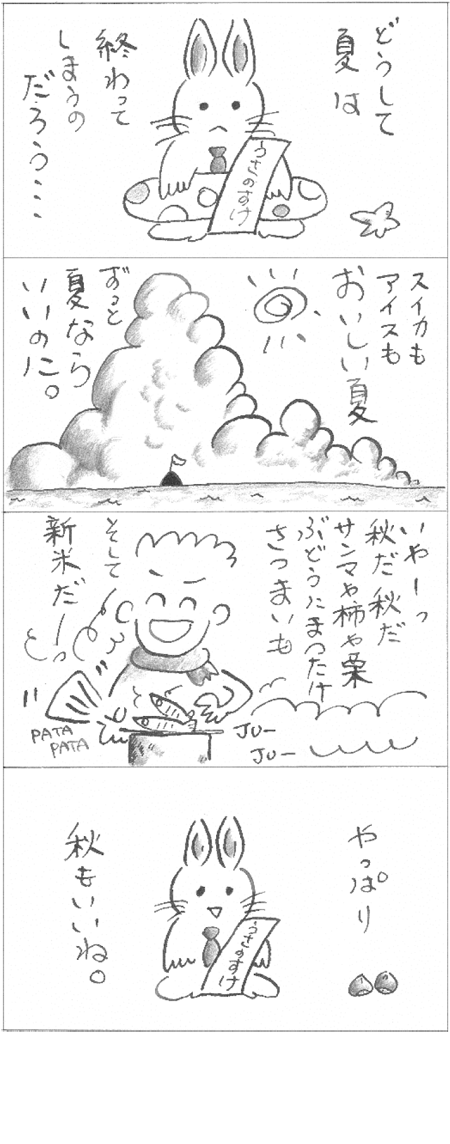 どうして
夏は
終わって
しまうの
だろう・・・
うさのすけ
スイカも
アイスも
おいしい夏
ずっと
夏なら
いいのに。
いやーっ
秋だ秋だ
サンマや柿や栗
ぶどうにまつたけ
さつまいも
そして
新米だーっ
とっ
PATA
PATA
JU-
JU-
やっぱり
秋もいいね。
うさのすけ